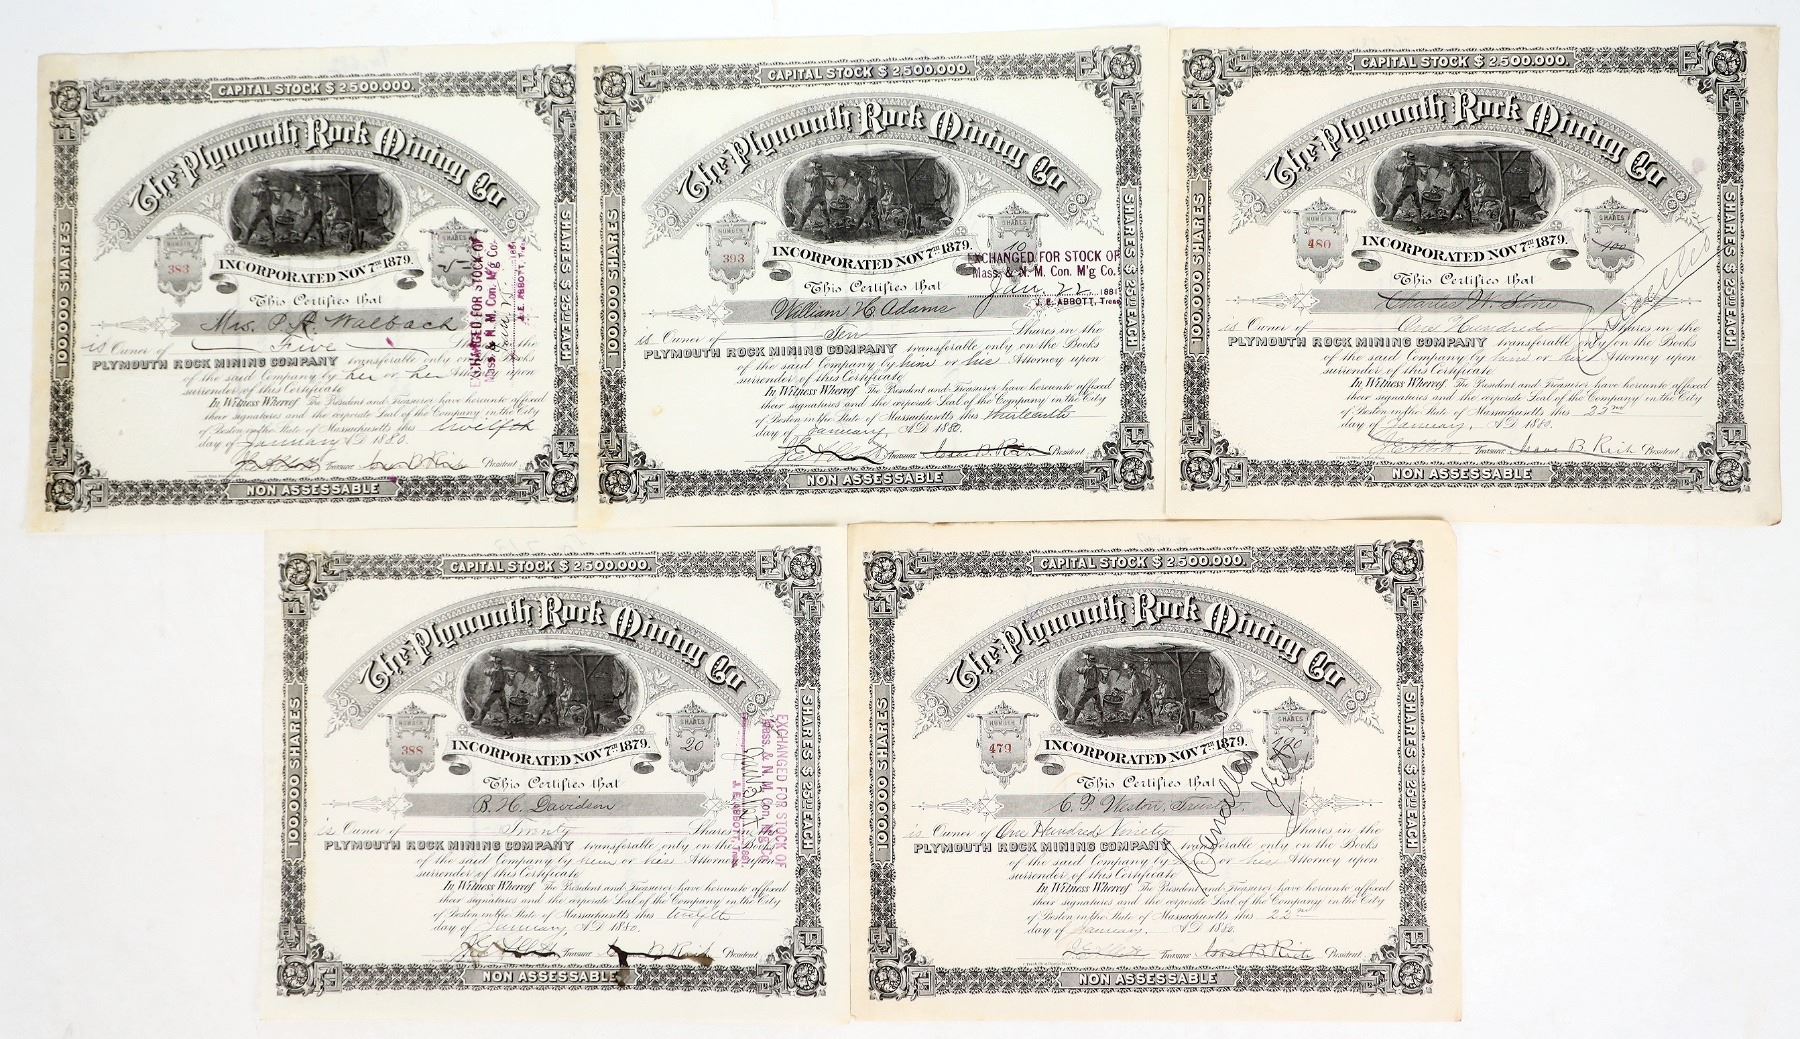 CAPITAL STOCK $ 2,500.000.
The Plymouth Rock Mining Co
NUMBER
383
SHARES
5
INCORPORATED NOV 7TH 1879.
This Certifies that
Mrs. P. A. Walbach
is Owner of Five Shares in the
PLYMOUTH ROCK MINING COMPANY transferable only on the Books
of the said Company by her or her Attorney upon
surrender of this Certificate
In Witness Whereof The President and Treasurer have hereunto affixed
their signatures and the corporate Seal of the Company in the City
of Boston in the State of Massachusetts this twelfth
day of January AD 1880.
Treasurer President
NON ASSESSABLE
100.000 SHARES
SHARES $ 25.00 EACH
EXCHANGED FOR STOCK OF
Mass. & N. M. Con. M'g Co.
1881
J. E. ABBOTT, Treas
CAPITAL STOCK $ 2,500.000.
The Plymouth Rock Mining Co
NUMBER
393
10
INCORPORATED NOV 7TH 1879.
EXCHANGED FOR STOCK OF
Mass. & N. M. Con. M'g Co.
Jan. 22 1881
J. E. ABBOTT, Treas
This Certifies that
William H. Adams
is Owner of Ten Shares in the
PLYMOUTH ROCK MINING COMPANY transferable only on the Books
of the said Company by him or his Attorney upon
surrender of this Certificate
In Witness Whereof The President and Treasurer have hereunto affixed
their signatures and the corporate Seal of the Company in the City
of Boston in the State of Massachusetts this thirteenth
day of January, AD 1880.
Treasurer Isaac B. Rich President
NON ASSESSABLE
100.000 SHARES
SHARES $ 25.00 EACH
CAPITAL STOCK $ 2,500.000.
The Plymouth Rock Mining Co
NUMBER
480
SHARES
100
INCORPORATED NOV 7TH 1879.
This Certifies that
Charles W.
is Owner of One Hundred Shares in the
PLYMOUTH ROCK MINING COMPANY transferable only on the Books
of the said Company by him or his Attorney upon
surrender of this Certificate
In Witness Whereof The President and Treasurer have hereunto affixed
their signatures and the corporate Seal of the Company in the City
of Boston in the State of Massachusetts this 22nd
day of January, AD 1880.
Treasurer Isaac B. Rich President
NON ASSESSABLE
100.000 SHARES
SHARES $ 25.00 EACH
Cancelled
CAPITAL STOCK $ 2,500.000.
The Plymouth Rock Mining Co
NUMBER
388
SHARES
20
INCORPORATED NOV 7TH 1879.
This Certifies that
B. H. Davidson
is Owner of Twenty Shares in the
PLYMOUTH ROCK MINING COMPANY transferable only on the Books
of the said Company by him or his Attorney upon
surrender of this Certificate
In Witness Whereof The President and Treasurer have hereunto affixed
their signatures and the corporate Seal of the Company in the City
of Boston in the State of Massachusetts this twelfth
day of January, AD 1880.
Treasurer President
NON ASSESSABLE
100.000 SHARES
SHARES $ 25.00 EACH
EXCHANGED FOR STOCK OF
Mass. & N. M. Con. M'g Co.
1881
J. E. ABBOTT, Treas
CAPITAL STOCK $ 2,500.000.
The Plymouth Rock Mining Co
NUMBER
479
SHARES
190
INCORPORATED NOV 7TH 1879.
This Certifies that
C. P. Weston, Trustee.
is Owner of One Hundred Ninety Shares in the
PLYMOUTH ROCK MINING COMPANY transferable only on the Books
of the said Company by or his Attorney upon
surrender of this Certificate
In Witness Whereof The President and Treasurer have hereunto affixed
their signatures and the corporate Seal of the Company in the City
of Boston in the State of Massachusetts this 22nd
day of January, AD 1880.
Treasurer Isaac B. Rich President
NON ASSESSABLE
100.000 SHARES
SHARES $ 25.00 EACH
Cancelled